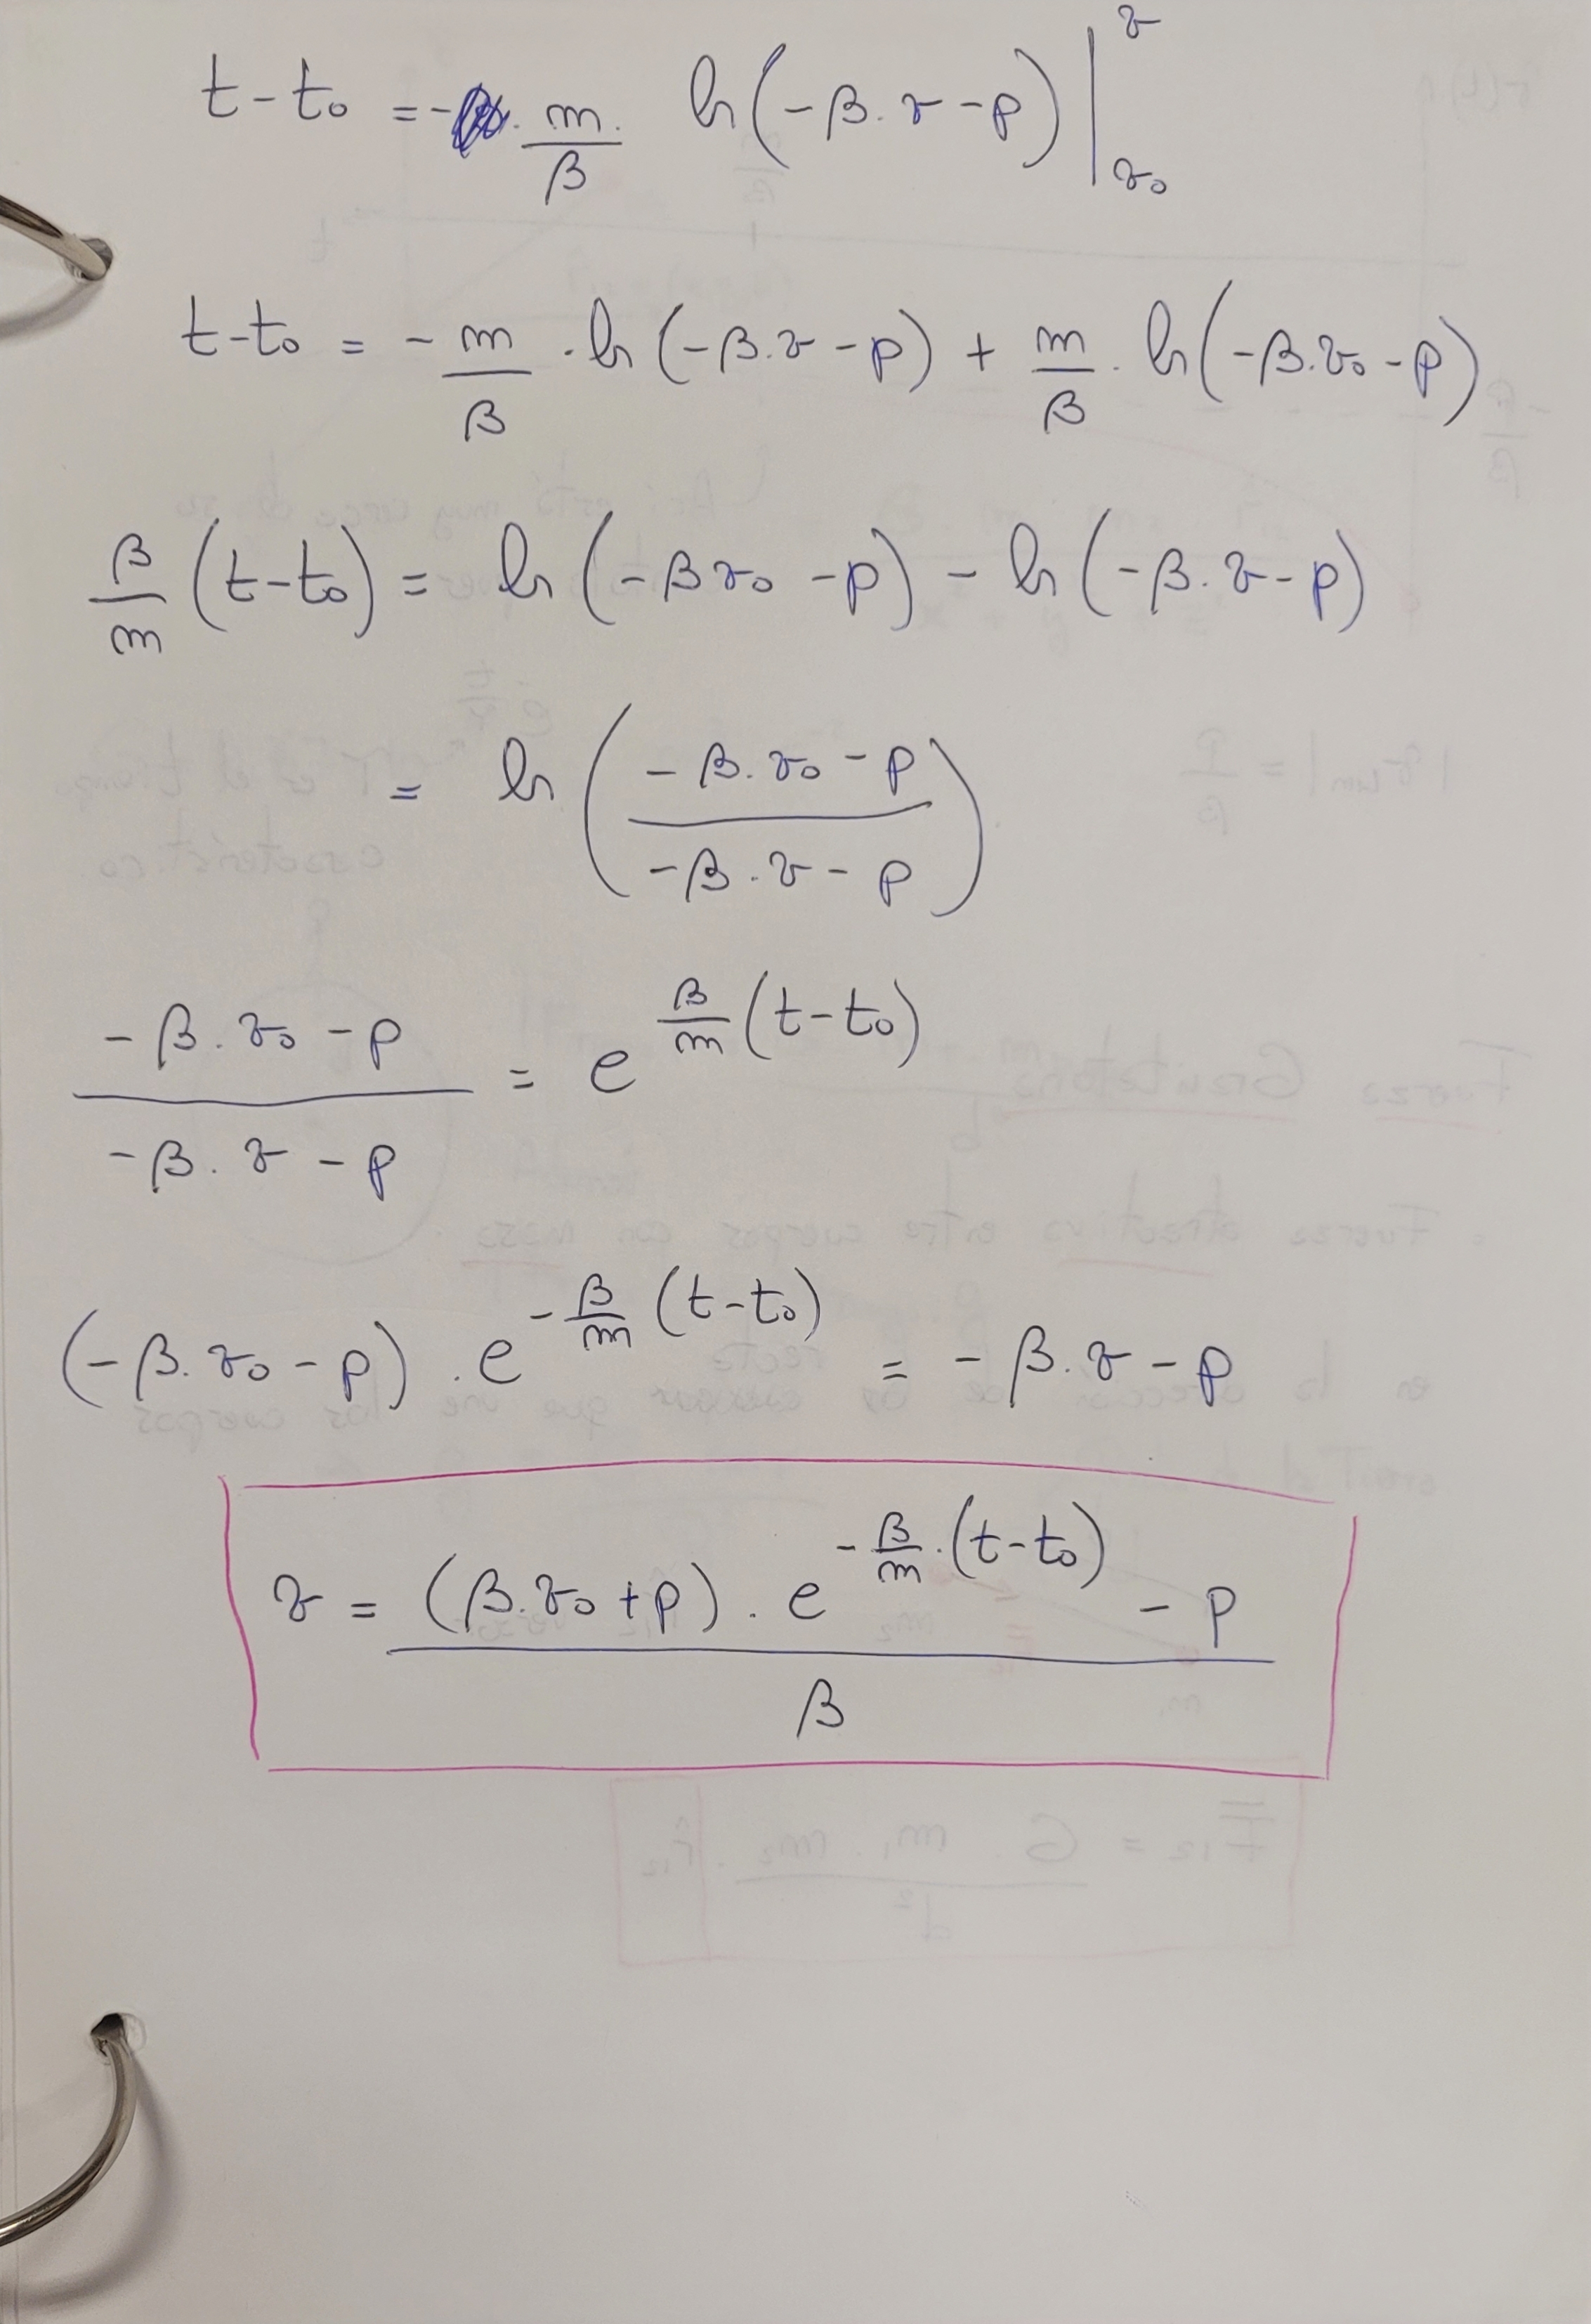 t - t₀ = - m/β ln(-β.v - p) |ᵥ₀ᵛ
t - t₀ = - m/β . ln(-β.v - p) + m/β . ln(-β.v₀ - p)
β/m (t - t₀) = ln(-βv₀ - p) - ln(-β.v - p)
= ln((-β.v₀ - p)/(-β.v - p))
(-β.v₀ - p)/(-β.v - p) = e^(β/m (t - t₀))
(-β.v₀ - p) . e^(-β/m (t - t₀)) = -β.v - p
v = ((β.v₀ + p) . e^(-β/m.(t - t₀)) - p)/β